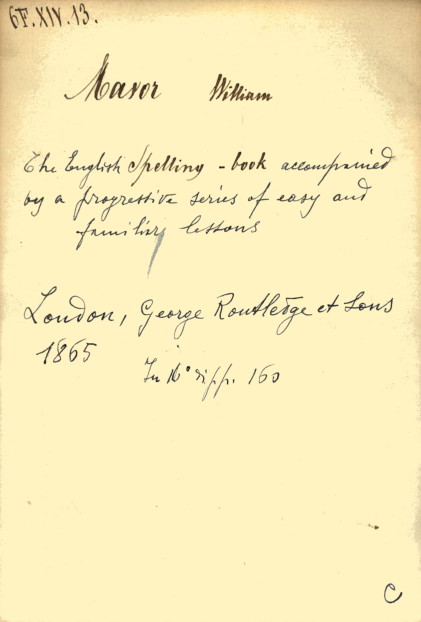 6F.XIV.13.
Mavor William
The English Spelling-book accompained
by a progressive series of easy and
familiar lessons
London, George Routledge et Sons
1865
In 16° di pp. 160
C